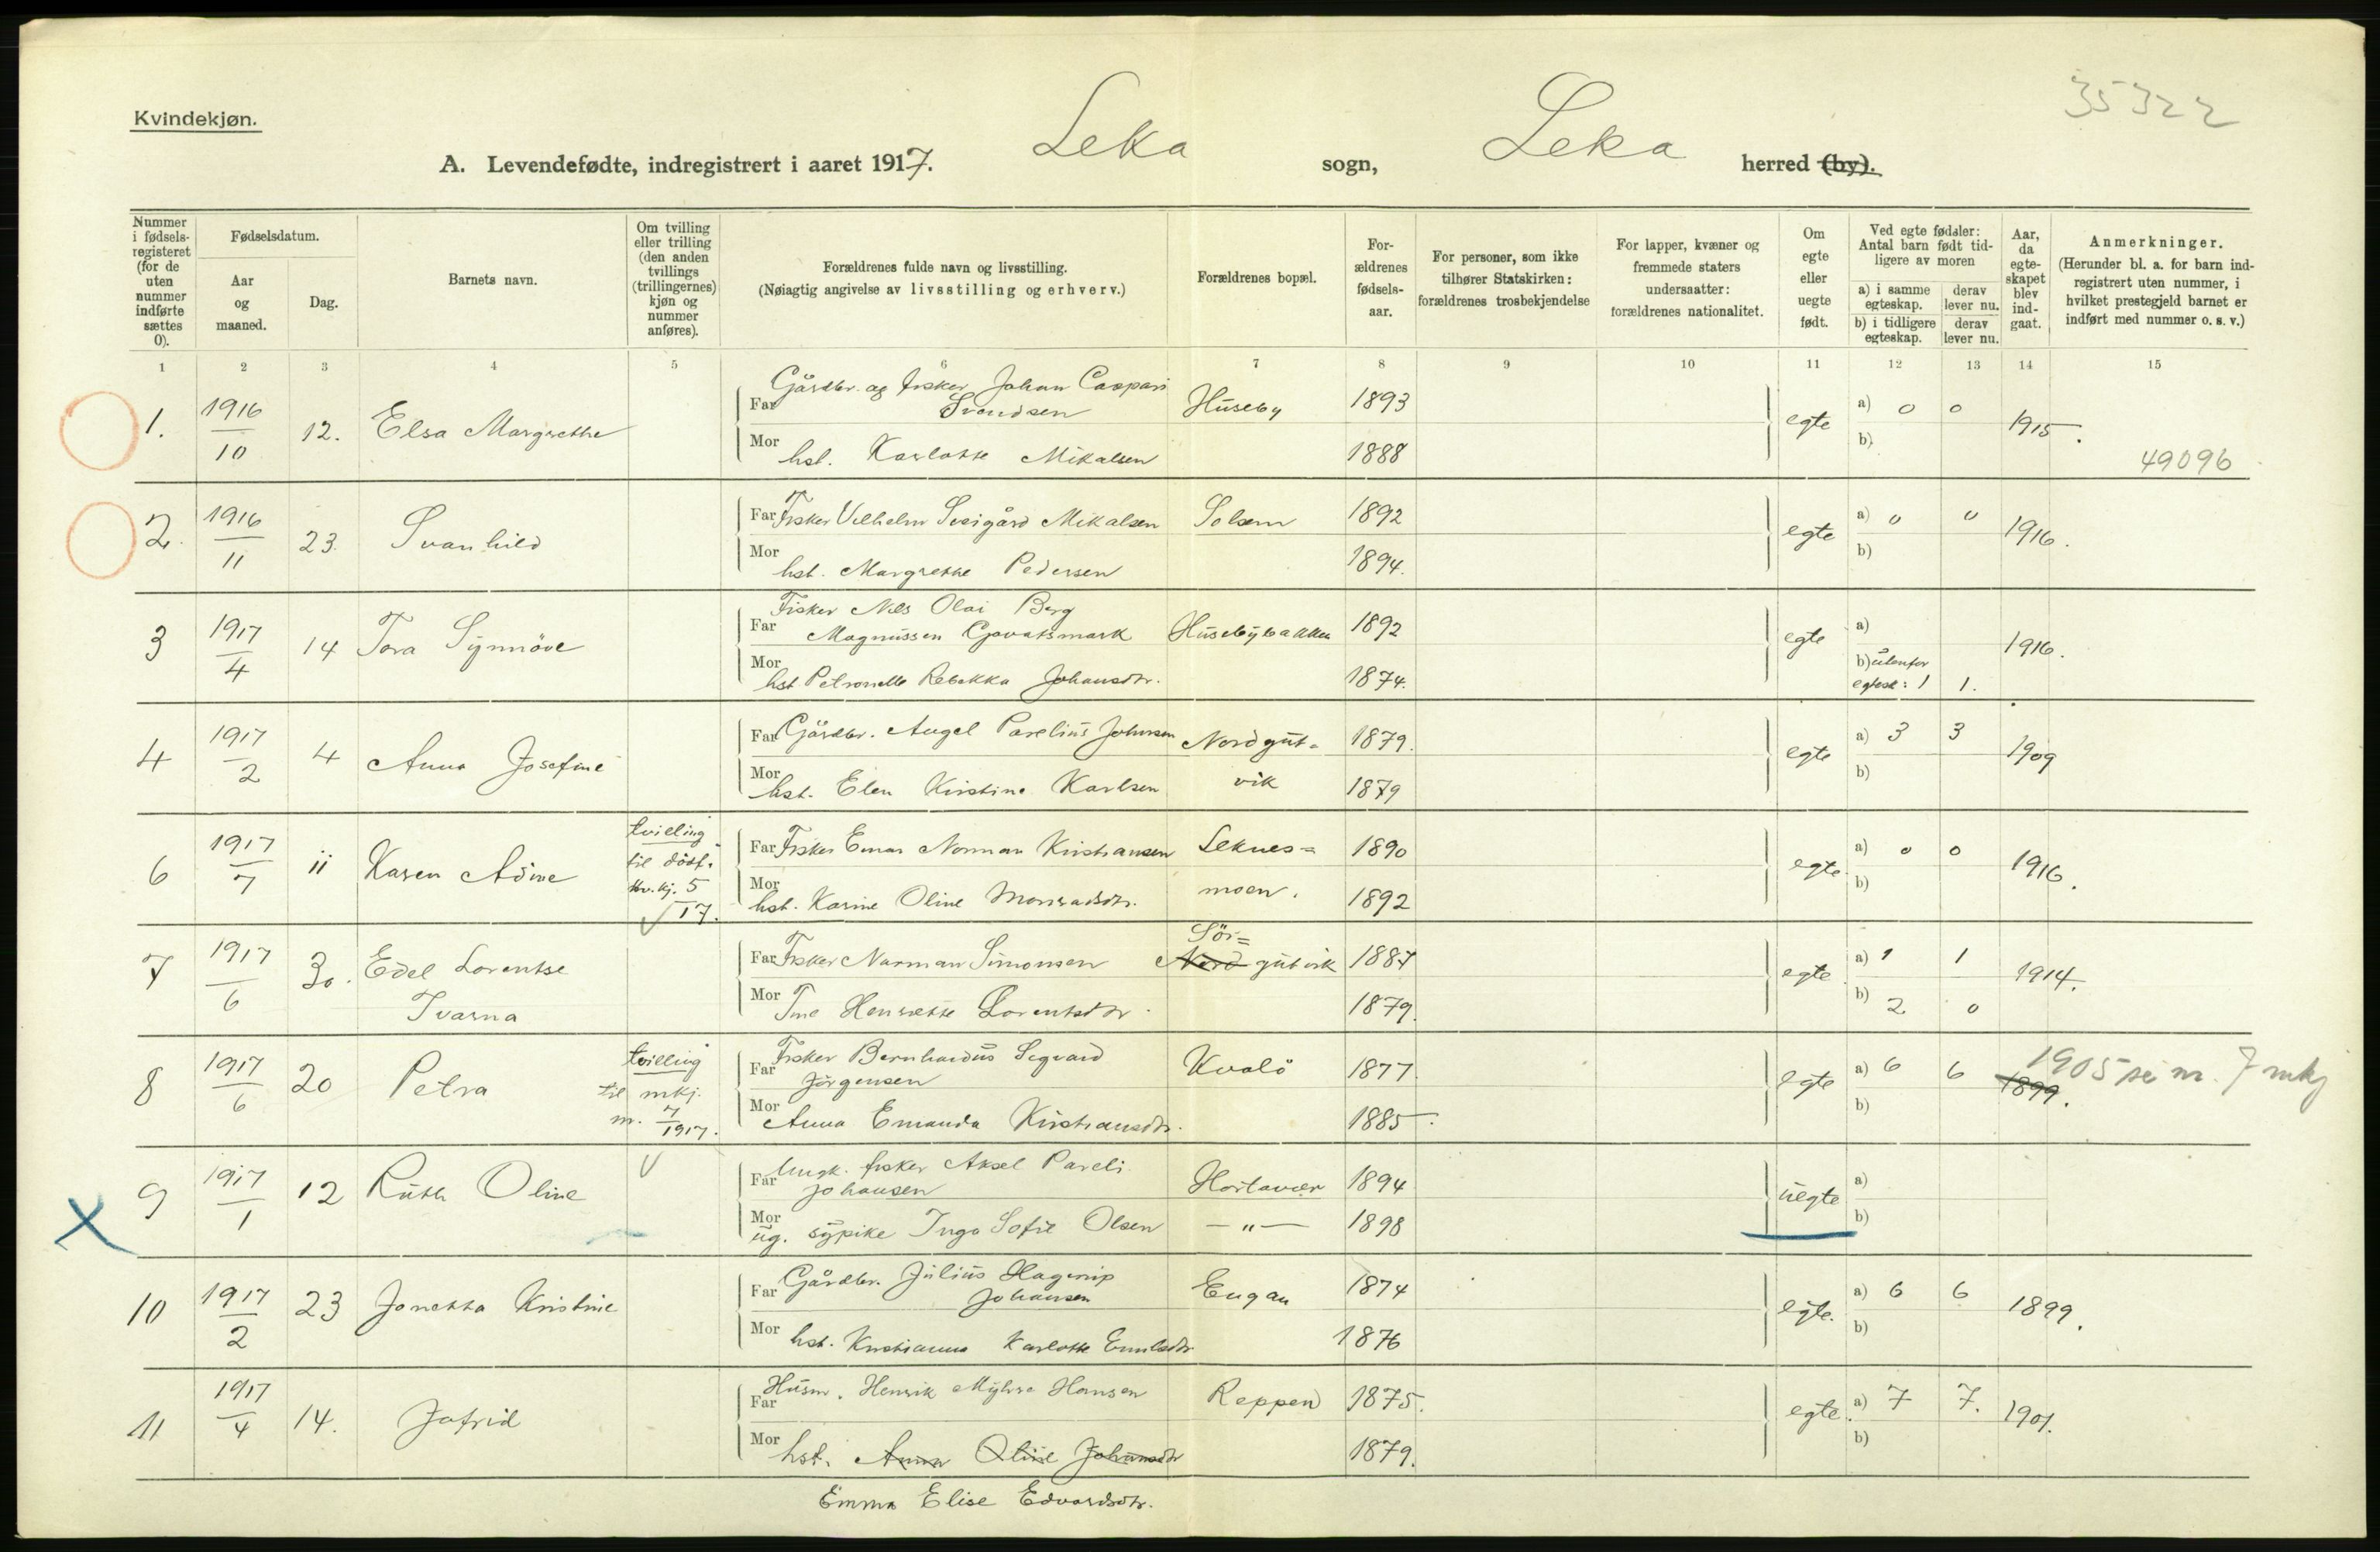 35322
Kvindekjøn.
A. Levendefødte, indregistrert i aaret 1917. Leka sogn, Leka herred (by).
Nummer i fødsels-registeret (for de uten nummer indførte sættes 0).
Fødselsdatum.
Aar og maaned.
Dag.
Barnets navn.
Om tvilling eller trilling (den anden tvillings (trillingernes) kjøn og nummer anføres).
Forældrenes fulde navn og livsstilling.
(Nøiagtig angivelse av livsstilling og erhverv.)
Forældrenes bopæl.
For-ældrenes fødsels-aar.
For personer, som ikke tilhører Statskirken: forældrenes trosbekjendelse
For lapper, kvæner og fremmede staters undersaatter: forældrenes nationalitet.
Om egte eller uegte født.
Ved egte fødsler: Antal barn født tid-ligere av moren
a) i samme egteskap. derav lever nu.
b) i tidligere egteskap. derav lever nu.
Aar, da egte-skapet blev ind-gaat.
Anmerkninger.
(Herunder bl. a. for barn ind-registrert uten nummer, i hvilket prestegjeld barnet er indført med nummer o. s. v.)
1 2 3 4 5 6 7 8 9 10 11 12 13 14 15
1. 1916 10 12. Elsa Margrethe
Far Gårdbr. og fisker Johan Caspari Svendsen Huseby 1893
Mor hst. Karlotte Mikalsen 1888
egte a) 0 0 b) 1915. 49096
2. 1916 11 23. Svanhild
Far Fisker Vilhelm Mikalsen Solsem 1892
Mor hst. Margrethe Pedersen 1894.
egte a) 0 0 b) 1916.
3 1917 4 14 Tora Synnöve
Far Fisker Nils Olai Berg Magnussen Husebybakken 1892
Mor hst. Petronelle Rebekka Johansdtr. 1874.
egte a) b) utenfor egtesk: 1 1. 1916.
4 1917 2 4 Anna Josefine
Far Gårdbr. Angel Parelius Johnsen Nordgut= 1879.
Mor hst. Elen Kirstine Karlsen vik 1879
egte a) 3 3 b) 1909
6 1917 7 11 Karen Adine tvilling til dödf. kv.kj. 5 17.
Far Fisker Einar Norman Kristiansen Leknes= 1890
Mor hst. Karine Oline Monradsdtr. moen. 1892
egte. a) 0 0 b) 1916.
7 1917 6 30. Edel Lorentse Ivarna
Far Fisker Norman Simonsen Sör= Nord gutvik 1887
Mor Tine Henriette Lorentsdtr. 1879.
egte. a) 1 1 b) 2 0 1914.
8 1917 6 20 Petra tvilling til mkj. nr. 7 1917.
Far Fisker Bernhardus Sigvard Jörgensen Kvalö 1877
Mor Anna Emanda Kristiansdtr. 1885.
egte a) 6 6 b) 1899. 1905 se nr. 7 mkj
9 1917 1 12 Ruth Oline
Far Ungk. fisker Aksel Pareli Johansen Hortavær 1894
Mor ug. sypike Inga Sofie Olsen —"— 1898
uegte a) b)
10 1917 2 23 Jonetta Kristine
Far Gårdbr. Julius Hagerup Johansen Engan 1874
Mor hst. Kristianna Karlotte Emilsdtr 1876
egte. a) 6 6 b) 1899.
11 1917 4 14. Jofrid
Far Husm. Henrik Myhre Hansen Reppen 1875.
Mor hst. Anna Oline Johansdtr 1879.
egte. a) 7 7. b) 1901.
Emma Elise Edvardsdtr.